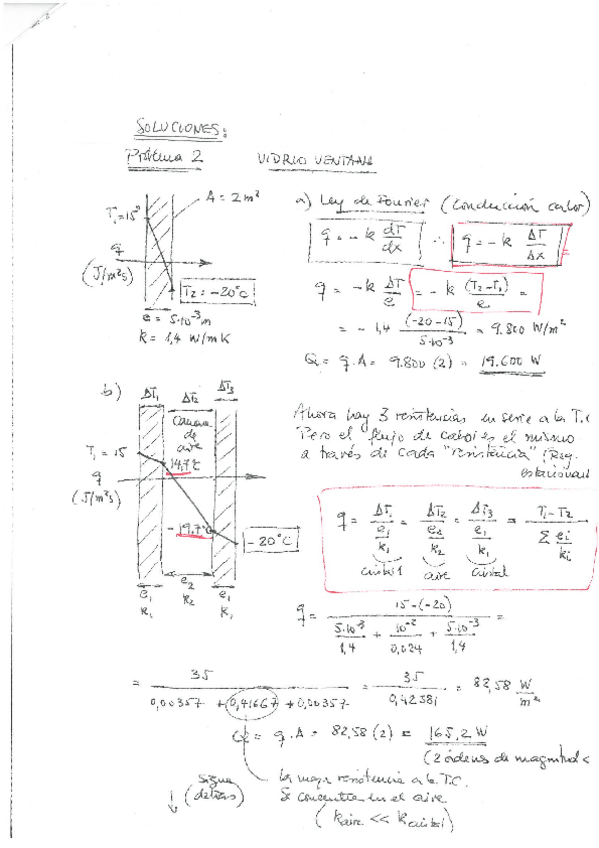 SOLUCIONES:
Problema 2 VIDRIO VENTANA
A = 2 m²
T₁=15°
q
(J/m²s)
T₂ = -20°C
e = 5·10⁻³ m
k = 1,4 W/mK
a) Ley de Fourier (Conducción calor)
q = -k dT/dx ∴ q = -k ΔT/Δx
q = -k ΔT/e = -k (T₂-T₁)/e =
= -1,4 (-20-15)/5·10⁻³ = 9.800 W/m²
Q = q.A = 9.800 (2) = 19.600 W
b)
ΔT₁ ΔT₂ ΔT₃
Cámara
de
aire
T₁ = 15
14,7°C
q
(J/m²s)
-19,7°C
-20°C
e₁ e₂ e₁
k₁ k₂ k₁
Ahora hay 3 resistencias en serie a la T.C
Pero el flujo de calor es el mismo
a través de cada "resistencia" (Reg.
estacionari
q = ΔT₁/(e₁/k₁) = ΔT₂/(e₂/k₂) = ΔT₃/(e₁/k₁) = (T₁-T₂)/(Σ ei/ki)
cristal aire cristal
q = (15-(-20))/(5·10⁻³/1,4 + 10⁻²/0,024 + 5·10⁻³/1,4) =
= 35/(0,00357 + 0,41667 + 0,00357) = 35/0,42381 = 82,58 W/m²
Q = q.A = 82,58 (2) = 165,2 W
(2 órdenes de magnitud <
Sigue
(detrás)
la mayor resistencia a la T.C.
Se concentra en el aire
(kaire << kcristal)